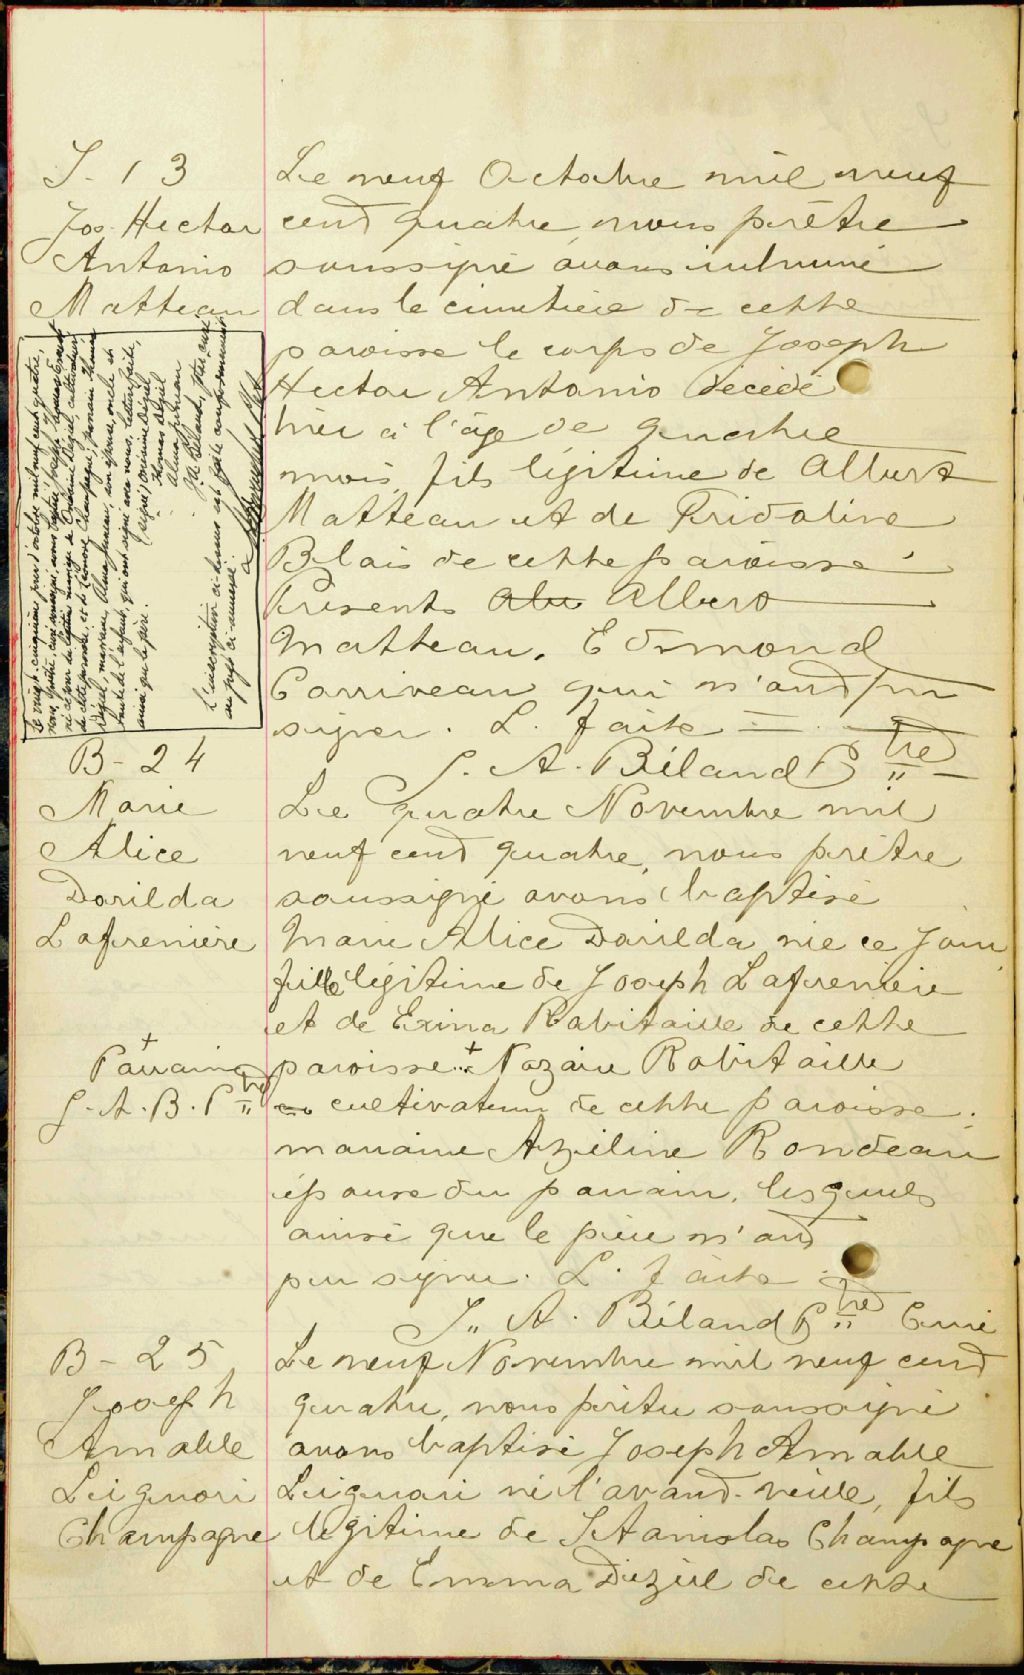 S. 13
Jos. Hector
Antonio
Matteau
Le neuf Octobre mil neuf
cent quatre, nous prêtre
soussigné avons inhumé
dans le cimetière de cette
paroisse le corps de Joseph
Hector Antonio décédé
hier à l'âge de quatre
mois, fils légitime de Albert
Matteau et de Fridoline
Blais de cette paroisse
Présents Albert
Matteau, Edmond
Corriveau qui n'ont pu
signer. L. faite
J. A. Béland Ptre
Le vingt-cinquième jour d'octobre mil neuf cent quatre,
nous, prêtre, curé soussigné, avons baptisé Joseph
né ce jour du légitime mariage de Onésime Déziel, cultivateur
de cette paroisse, et de Léonore Champagne; parrain Thomas
Déziel, marraine, Alma Juneau, son épouse, oncle et
tante de l'enfant, qui ont signé avec nous, lecture faite,
ainsi que le père.
(Signé) Onésime Déziel
" Thomas Déziel
" Alma Juneau
" J. A. Béland, Ptre curé
L'inscription ci-dessus est faite conformément
au jugé ci-annexé.
B - 24
Marie
Alice
Dorilda
Lafrenière
Le quatre Novembre mil
neuf cent quatre, nous prêtre
soussigné avons baptisé
Marie Alice Dorilda née ce jour
fille légitime de Joseph Lafrenière
et de Exina Robitaille de cette
paroisse + Nazaire Robitaille
cultivateur de cette paroisse.
+
Parrain
J. A. B. Ptre
marraine Aziline Rondeau
épouse du parrain, lesquels
ainsi que le père n'ont
pu signer. L. faite.
J. A. Béland Ptre Curé
B - 25
Joseph
Amable
Liguori
Champagne
Le neuf Novembre mil neuf cent
quatre, nous prêtre soussigné
avons baptisé Joseph Amable
Liguori né l'avant-veille, fils
légitime de Stanislas Champagne
et de Emma Déziel de cette